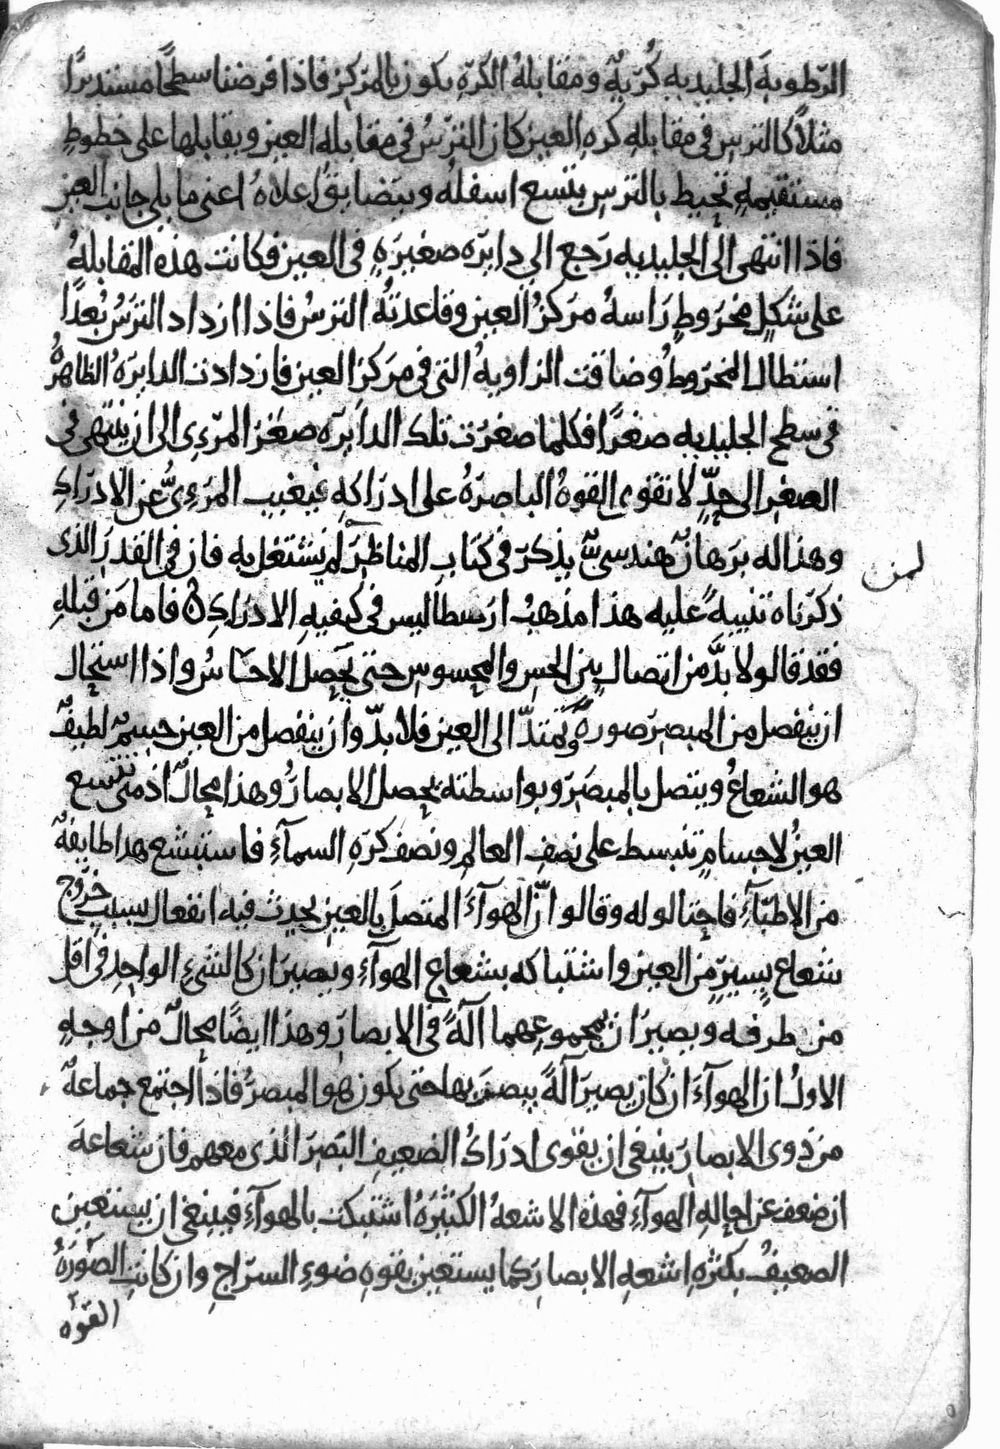 الرّطوبةَ الجليديه كُرّيهٌ ومقابلهُ الكرّهِ يكون بالمركز فاذا فرضنا سطحًا مستديرًا
مثلاً كالترسِ في مقابلهِ كرهِ العين كان الترّسُ في مقابلهِ العين ويقابلها على خطوطٍ
مستقيمهٍ تحيط بالترسِ يتسع اسفلهُ ويتضايق اعلاهُ اعنى ما يلى جانب العين
فاذا انتهى الى الجليديه رَجع الى دايرّه صغيرَهٍ فى العين فكانت هذه المقابلهُ
على شكلٍ مخرَوطٍ رَاسهُ مرَكزُ العين وقاعدتهُ الترسُ فاذا ازداد الترَسُ بُعدًا
استطال المخرّوطُ وضاقت الزاويهُ التى فى مرَكز العين فازدادت الدايرَهُ الظاهرهُ
فى سطح الجليديه صغرًا فكلما صغرَت تلك الدايرّه صغرَ المرّءِى الى ان ينتهى فى
الصغرِ الى حدٍّ لا تقوى القوهُ الباصرَهُ على ادرَاكهِ فيغيب المرَءِىُّ عن الادرَاكِ
وهذا له برَهانٌ هندسىٌّ يذكرّ فى كتابِ المناظرَ لم نشتغل به فان فى القدرَ الذى
ذكرّناه تنبيهً عليه هذا مذهبُ ارَسطاليس فى كيفيهِ الادرَاكِ فاما مَن قبله
فقد قالو لا بدَّ من اتصالٍ بين الحسِ والمحسوسِ حتى يحصل الاحسَاسُ واذا استحال
ان ينفصل من المبصرَ صورهٌ وتمتدّ الى العين فلا بدّ وان ينفصل من العين جسمٌ لطيفٌ
هو الشعاعُ ويتصل بالمبصَرّ وبواسطته يحصل الابصارُ وهذا محالٌ اذ متى تتسع
العينُ لاجسامٍ تنبسط على نصفِ العالمِ ونصف كرّهِ السمآءِ فاستبشع هدا طايفهٌ
من الاطبّآءِ فاحتالو له وقالو انّ الهوآءَ المتصلَ بالعينِ يحدث فيه انفعال بسببِ خرُوج
شعاع يسيرٍ من العين واشتباكه بشعاع الهوآءِ ويصيرَان كالشىءِ الواحدِ فى اقل
من طرفه ويصيرَان بمجموعِهما آلهً فى الابصارَ وهذا ايضًا محالٌ من اوجهٍ
الاولُ ان الهوآءَ ان كان يصيرَ آلهً يبصرَ بها حتى يكون هو المبصرُ فاذا اجتمع جماعهٌ
من ذوى الابصارَ ينبغى ان يقوى ادرَاكُ الضعيفِ البَصِرَ الذى معهم فان شعاعهَ
ان ضعف عن احالهِ الهوآءِ فهذه الاشعهُ الكثيرَهُ اشتبكت بالهوآءِ فينبغى ان يستعين
الضعيفُ بكثرهِ اشعهِ الابصارِ كما يستعين بقوهِ ضوءِ السرّاجِ وان كانتِ الصّورَهُ
القوه